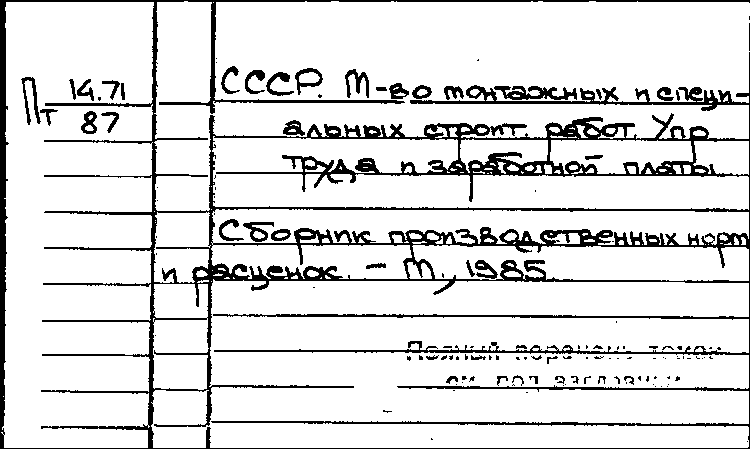 Пт 14.71
87
СССР. М-во монтажных и специ-
альных строит. работ. Упр
труда и заработной платы
Сборник производственных норм
и расценок. – М., 1985.
Полный перечень томов
см. под заглавием